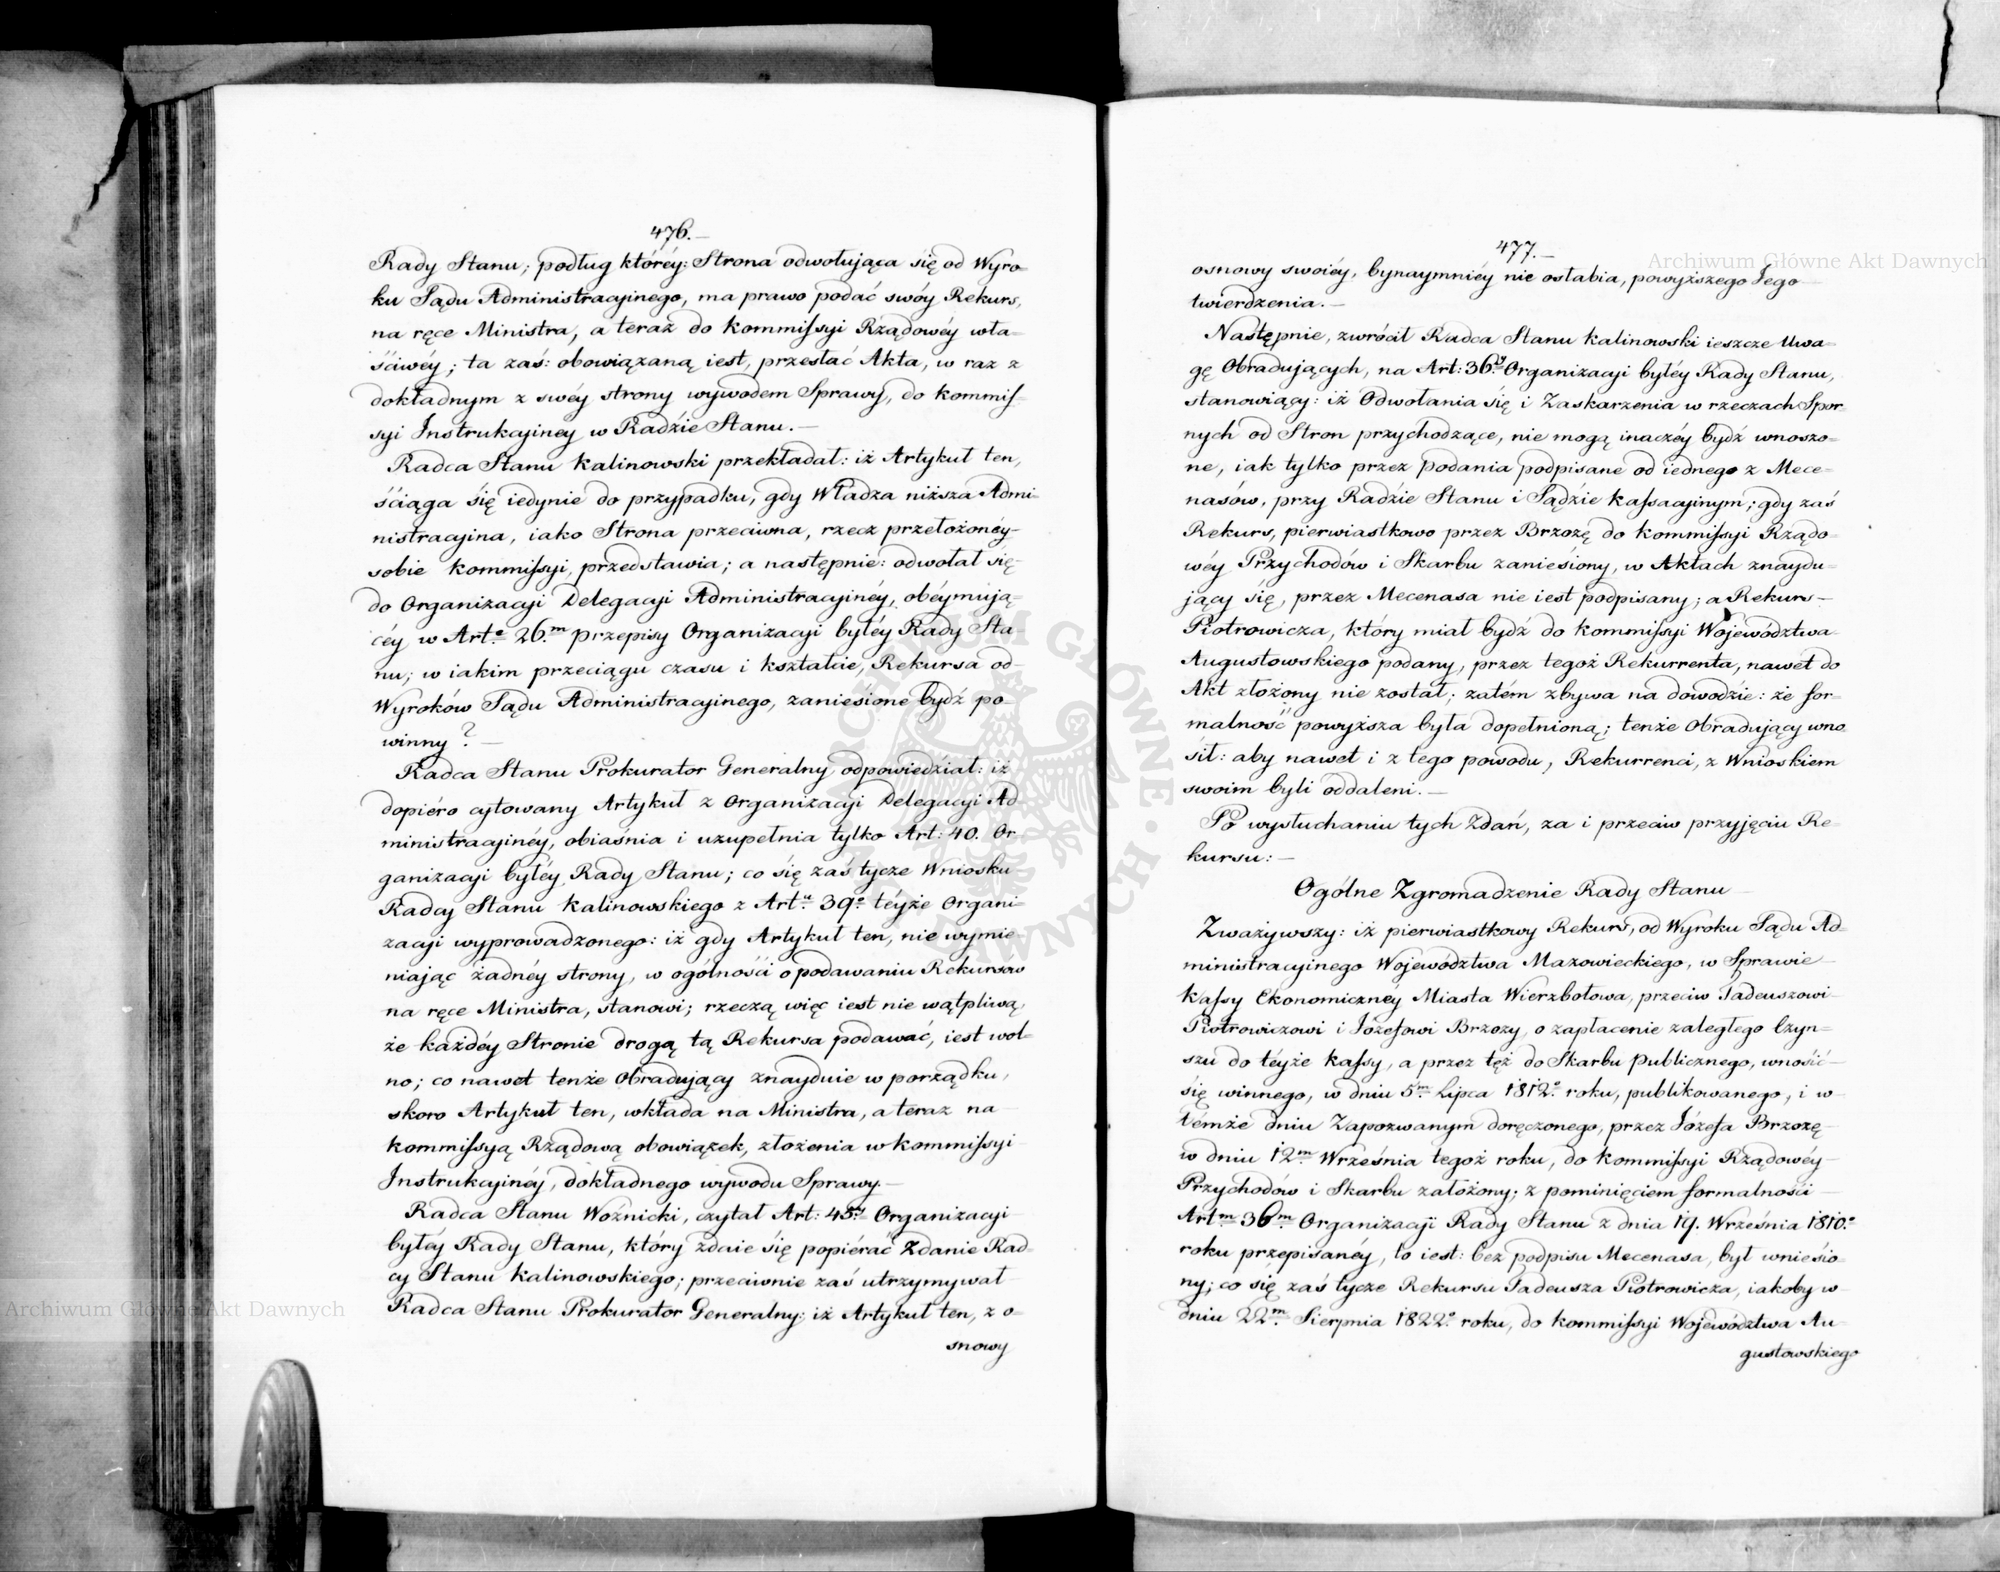 476.—
Rady Stanu; podług któréy: Strona odwołująca się od Wyro=
ku Sądu Administracyinego, ma prawo podać swóy Rekurs,
na ręce Ministra, a teraz do Kommissyi Rządowéy wła=
ściwéy; ta zaś: obowiązaną iest, przesłać Akta, w raz z
dokładnym z swéy strony wywodem Sprawy, do Kommis=
syi Instrukcyinéy w Radzie Stanu.—
Radca Stanu Kalinowski przekładał: iż Artykuł ten,
ściąga się iedynie do przypadku, gdy Władza niższa Admi=
nistracyina, iako Strona przeciwna, rzecz przełożonéy
sobie Kommissyi, przedstawia; a następnie: odwołał się
do Organizacyi Delegacyi Administracyinéy, obéymują=
céy w Art.e 26.m przepisy Organizacyi byłéy Rady Sta=
nu; w iakim przeciągu czasu i kształcie, Rekursa od
Wyroków Sądu Administracyinego, zaniesione bydź po=
winny?—
Radca Stanu Prokurator Generalny odpowiedział: iż
dopiéro cytowany Artykuł z Organizacyi Delegacyi Ad
ministracyinéy, obiaśnia i uzupełnia tylko Art: 40. Or=
ganizacyi byłéy Rady Stanu; co się zaś tycze Wniosku
Radcy Stanu Kalinowskiego z Art.u 39.o téyże Organi=
zacyi wyprowadzonego: iż gdy Artykuł ten, nie wymie=
niając żadnéy strony, w ogólności o podawaniu Rekursów
na ręce Ministra, stanowi; rzeczą więc iest nie wątpliwą,
że każdéy Stronie drogą tą Rekursa podawać, iest wol=
no; co nawet tenże Obradujący znayduie w porządku,
skoro Artykuł ten, wkłada na Ministra, a teraz na
Kommissyą Rządową obowiązek, złożenia w Kommissyi
Instrukcyinéy, dokładnego wywodu Sprawy.—
Radca Stanu Woźnicki, czytał Art: 45.ty Organizacyi
byłéy Rady Stanu, który zdaie się popiérać Zdanie Rad=
cy Stanu Kalinowskiego; przeciwnie zaś utrzymywał
Radca Stanu Prokurator Generalny: iż Artykuł ten, z o=
snowy
477.—
osnowy swoiéy, bynaymniéy nie osłabia, powyższego Jego
twierdzenia.—
Następnie, zwrócił Radca Stanu Kalinowski ieszcze Uwa=
gę Obradujących, na Art: 36.ty Organizacyi byłéy Rady Stanu,
stanowiący: iż Odwołania się i Zaskarzenia w rzeczach Spor=
nych od Stron przychodzące, nie mogą inaczéy bydź wnoszo=
ne, iak tylko przez podania podpisane od iednego z Mece=
nasów, przy Radzie Stanu i Sądzie Kassacyinym; gdy zaś
Rekurs, pierwiastkowo przez Brzozę do Kommissyi Rządo=
wéy Przychodów i Skarbu zaniesiony, w Aktach znaydu=
jący się, przez Mecenasa nie iest podpisany; a Rekurs—
Piotrowicza, który miał bydź do Kommissyi Województwa
Augustowskiego podany, przez tegoż Rekurrenta, nawet do
Akt złożony nie został; zatém zbywa na dowodzie: że for=
malność powyższa była dopełnioną; tenże Obradujący wno
sił: aby nawet i z tego powodu, Rekurrenci, z Wnioskiem
swoim byli oddaleni.—
Po wysłuchaniu tych Zdań, za i przeciw przyjęciu Re=
kursu:—
Ogólne Zgromadzenie Rady Stanu
Zważywszy: iż pierwiastkowy Rekurs, od Wyroku Sądu Ad=
ministracyinego Województwa Mazowieckiego, w Sprawie
Kassy Ekonomicznéy Miasta Wierzbołowa, przeciw Tadeuszowi
Piotrowiczowi i Józefowi Brzozy, o zapłacenie zaległego Czyn=
szu do téyże Kassy, a przez tęż do Skarbu Publicznego, wnosić
się winnego, w dniu 5.m Lipca 1812.o roku, publikowanego, i w
témże dniu Zapozwanym doręczonego, przez Józefa Brzozę
w dniu 12.m Września tegoż roku, do Kommissyi Rządowéy
Przychodów i Skarbu założony; z pominięciem formalności
Art.m 36.m Organizacyi Rady Stanu z dnia 19. Września 1810.o
roku przepisanéy, to iest: bez podpisu Mecenasa, był wniesio=
ny; co się zaś tycze Rekursu Tadeusza Piotrowicza, iakoby w
dniu 22.m Sierpnia 1822.o roku, do Kommissyi Województwa Au=
gustowskiego
Archiwum Główne Akt Dawnych
Archiwum Główne Akt Dawnych
ARCHIWUM GŁÓWNE · AKT DAWNYCH